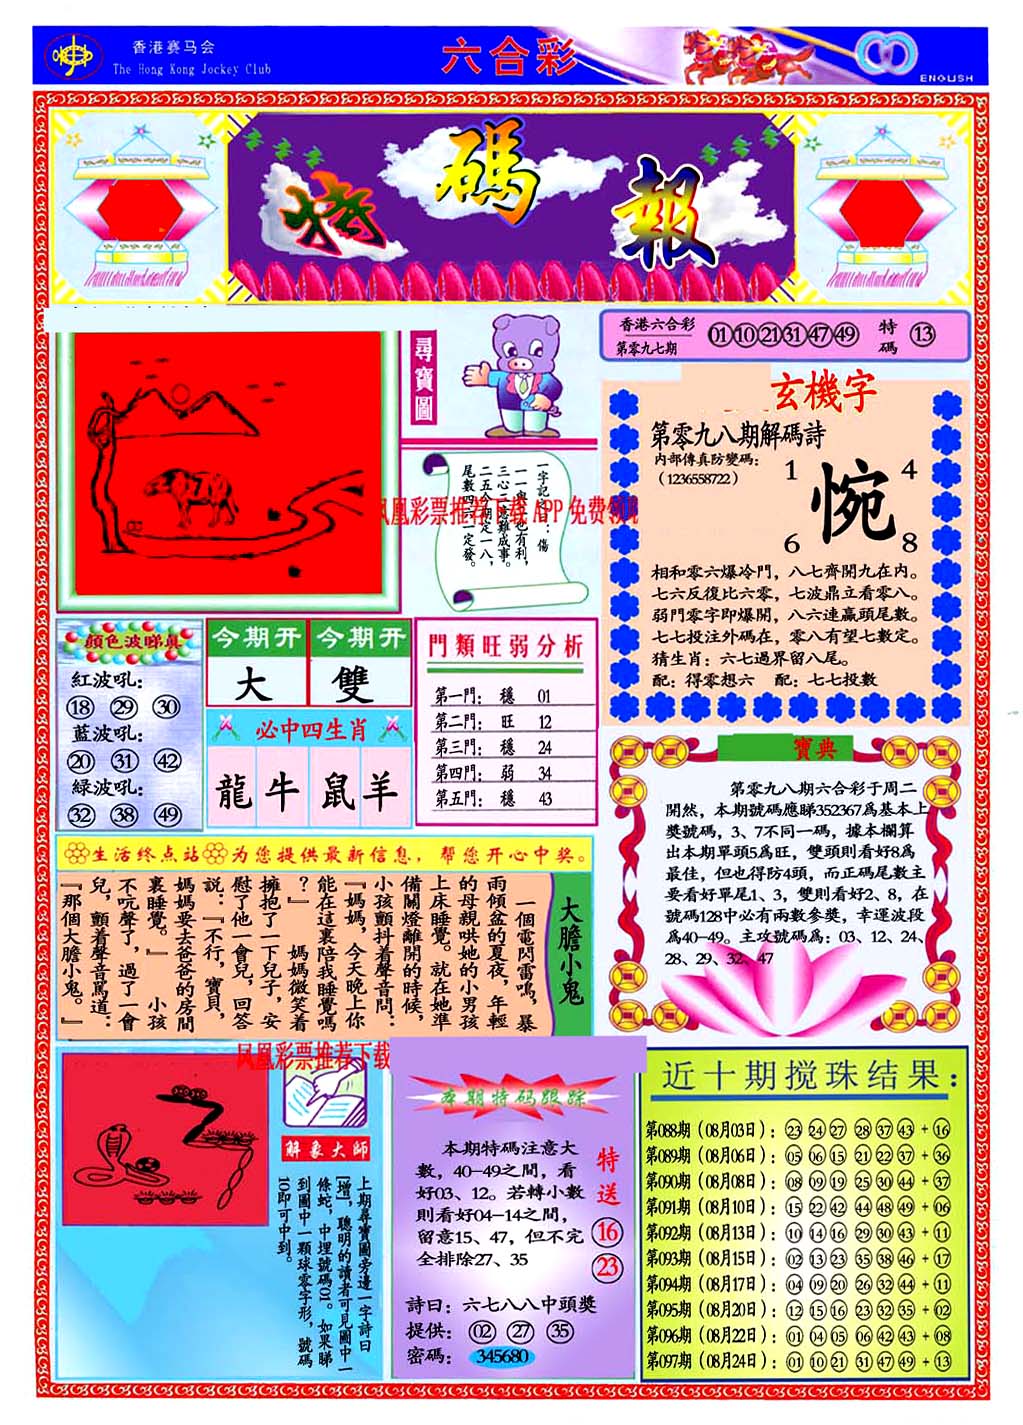 香港赛马会
The Hong Kong Jockey Club
六合彩
ENGLISH
特碼報
尋寶圖
香港六合彩
第零九七期
01 10 21 31 47 49
特碼
13
一字記之曰：傷
一一與七也有利，
三心二意難成事。
二五今期定一八，
尾數四六一定發。
凤凰彩票推荐下载 APP 免费领
玄機字
第零九八期解碼詩
内部傳真防變碼：
（1236558722）
1 4
惋
6 8
相和零六爆冷門，八七齊開九在内。
七六反復比六零，七波鼎立看零八。
弱門零字即爆開，八六連贏頭尾數。
七七投注外碼在，零八有望七數定。
猜生肖：六七過界留八尾。
配：得零想六 配：七七投數
顔色波睇真
紅波吼：
18 29 30
藍波吼：
20 31 42
緑波吼：
32 38 49
今期开 今期开
大 雙
必中四生肖
龍 牛 鼠 羊
門類旺弱分析
第一門： 穩 01
第二門： 旺 12
第三門： 穩 24
第四門： 弱 34
第五門： 穩 43
寶典
第零九八期六合彩于周二
開然，本期號碼應睇352367爲基本上
獎號碼，3、7不同一碼，據本欄算
出本期單頭5爲旺，雙頭則看好8爲
最佳，但也得防4頭，而正碼尾數主
要看好單尾1、3，雙則看好2、8，在
號碼128中必有兩數參獎，幸運波段
爲40-49。主攻號碼爲：03、12、24、
28、29、32、47
生活终点站 为您提供最新信息，帮您开心中奖。
大膽小鬼
一個電閃雷鳴，暴
雨傾盆的夏夜，年輕
的母親哄她的小男孩
上床睡覺。就在她準
備關燈離開的時候，
小孩顫抖着聲音問：
『媽媽，今天晚上你
能在這裏陪我睡覺嗎
？』 媽媽微笑着
擁抱了一下兒子，安
慰了他一會兒，回答
説：『不行，寶貝，
媽媽要去爸爸的房間
裏睡覺。』 小孩
不吭聲了，過了一會
兒，顫着聲音罵道：
『那個大膽小鬼。』
凤凰彩票推荐下载
解象大師
上期尋寶圖旁邊一字詩曰
[增]，聰明的讀者可見圖中一
條蛇，中埋號碼01。如果睇
到圖中一顆球零字形，號碼
10即可中到。
本期特码跟踪
本期特碼注意大
數，40-49之間，看
好03、12。若轉小數
則看好04-14之間，
留意15、47，但不完
全排除27、35
特送
16
23
詩曰：六七八八中頭獎
提供： 02 27 35
密碼： 345680
近十期搅珠结果：
第088期（08月03日）：23 24 27 28 37 43 + 16
第089期（08月06日）：05 06 15 21 22 37 + 36
第090期（08月08日）：08 09 19 25 30 44 + 37
第091期（08月10日）：15 22 42 44 48 49 + 06
第092期（08月13日）：10 14 16 29 30 43 + 11
第093期（08月15日）：02 13 23 35 38 46 + 17
第094期（08月17日）：04 09 20 26 32 44 + 11
第095期（08月20日）：12 15 16 23 32 35 + 02
第096期（08月22日）：01 04 05 06 42 43 + 08
第097期（08月24日）：01 10 21 31 47 49 + 13